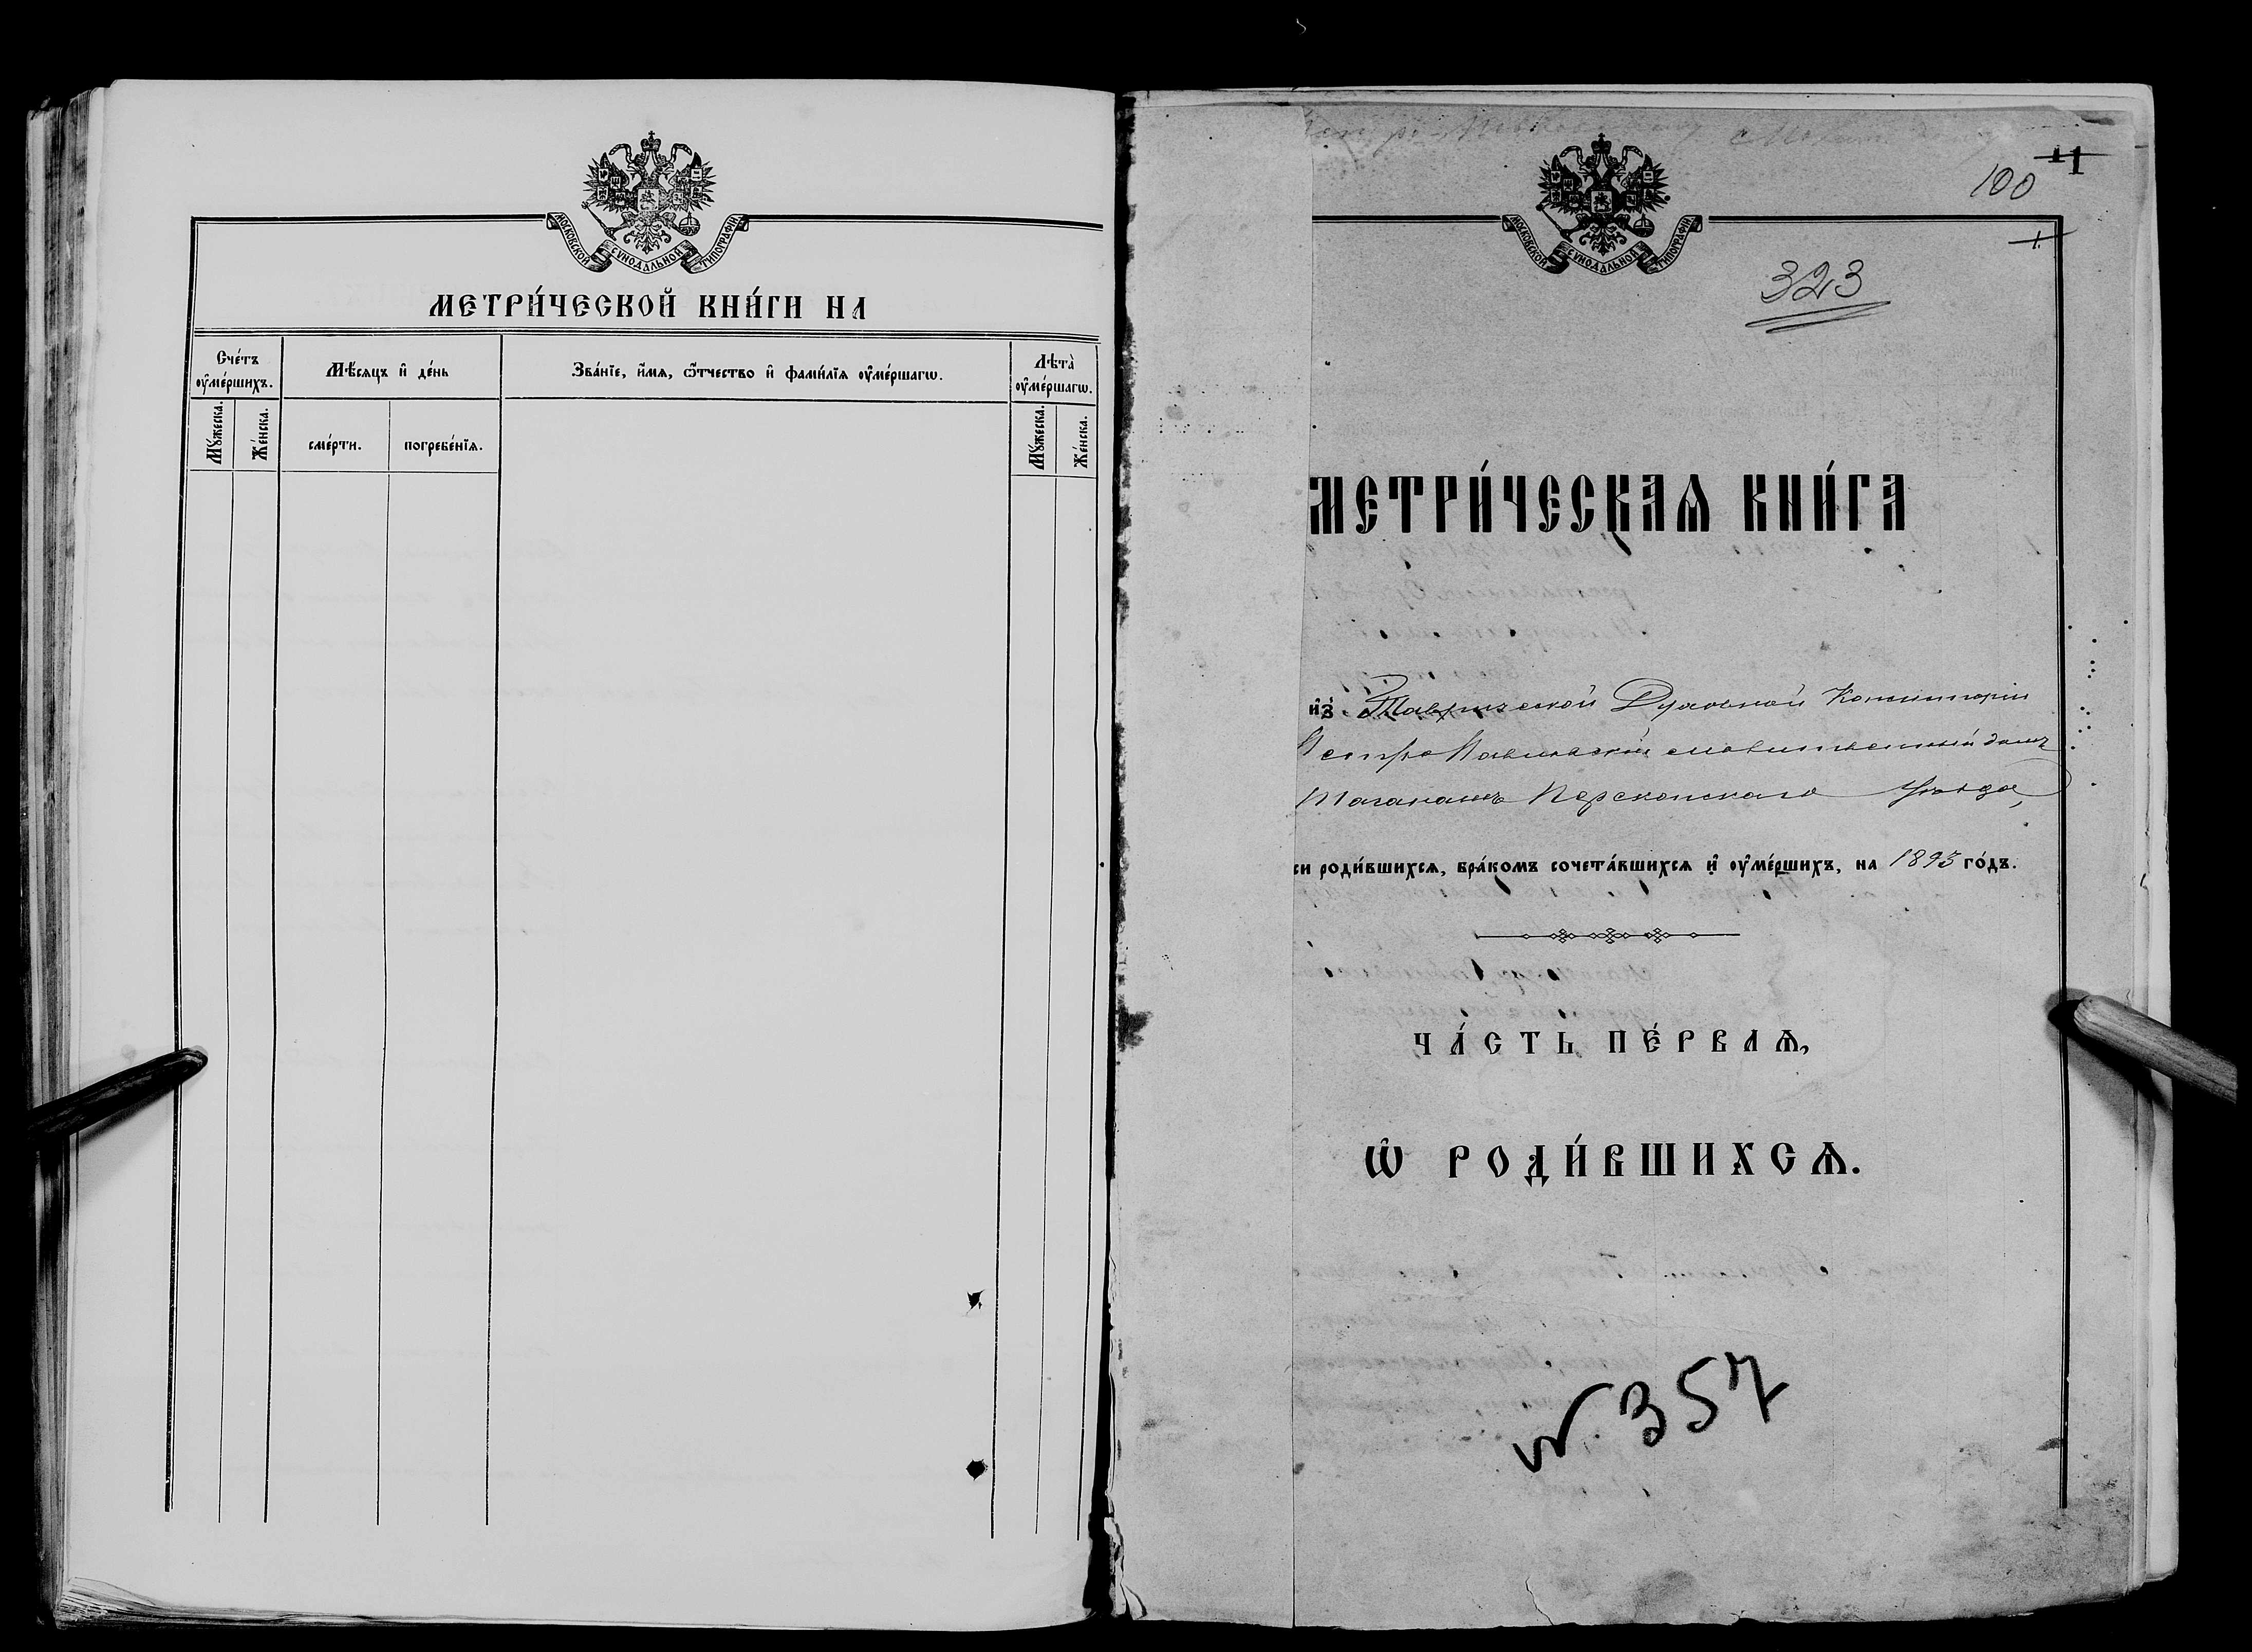 МОСКОВСКОЙ СѴНОДАЛЬНОЙ ТИПОГРАФІИ
МЕТРИ́ЧЕСКОЙ КНИ́ГИ НА
Сче́тъ ᲂу҆ме́ршихъ.
Мѣ́сяцъ и҆ де́нь
Зва́нїе, и҆́мѧ, ѻ҆́тчество и҆ фами́лїѧ ᲂу҆ме́ршагѡ.
Лѣта̀ ᲂу҆ме́ршагѡ.
Мꙋ́жеска.
Же́нска.
сме́рти.
погребе́нїѧ.
Мꙋ́жеска.
Же́нска.
1
100
1.
МОСКОВСКОЙ СѴНОДАЛЬНОЙ ТИПОГРАФІИ
323
МЕТРИ́ЧЕСКАѦ КНИ́ГА
и҆з̾ Таврической Духовной Консисторіи
Петро Павловскій молитвенный домъ
Таганашъ Перекопскаго уѣзда,
си роди́вшихсѧ, бра́комъ сочета́вшихсѧ и҆ ᲂу҆ме́ршихъ, на 1893 го́дъ.
ЧА́СТЬ ПЕ́РВАѦ,
Ѡ҆ РОДИ́ВШИХСѦ.
№. 357